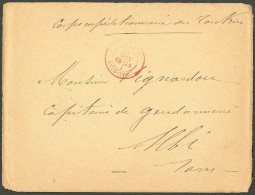 Corps expéditionnaire du Tonkin
Monsieur Pignardou
Capitaine de gendarmerie
Albi
Tarn